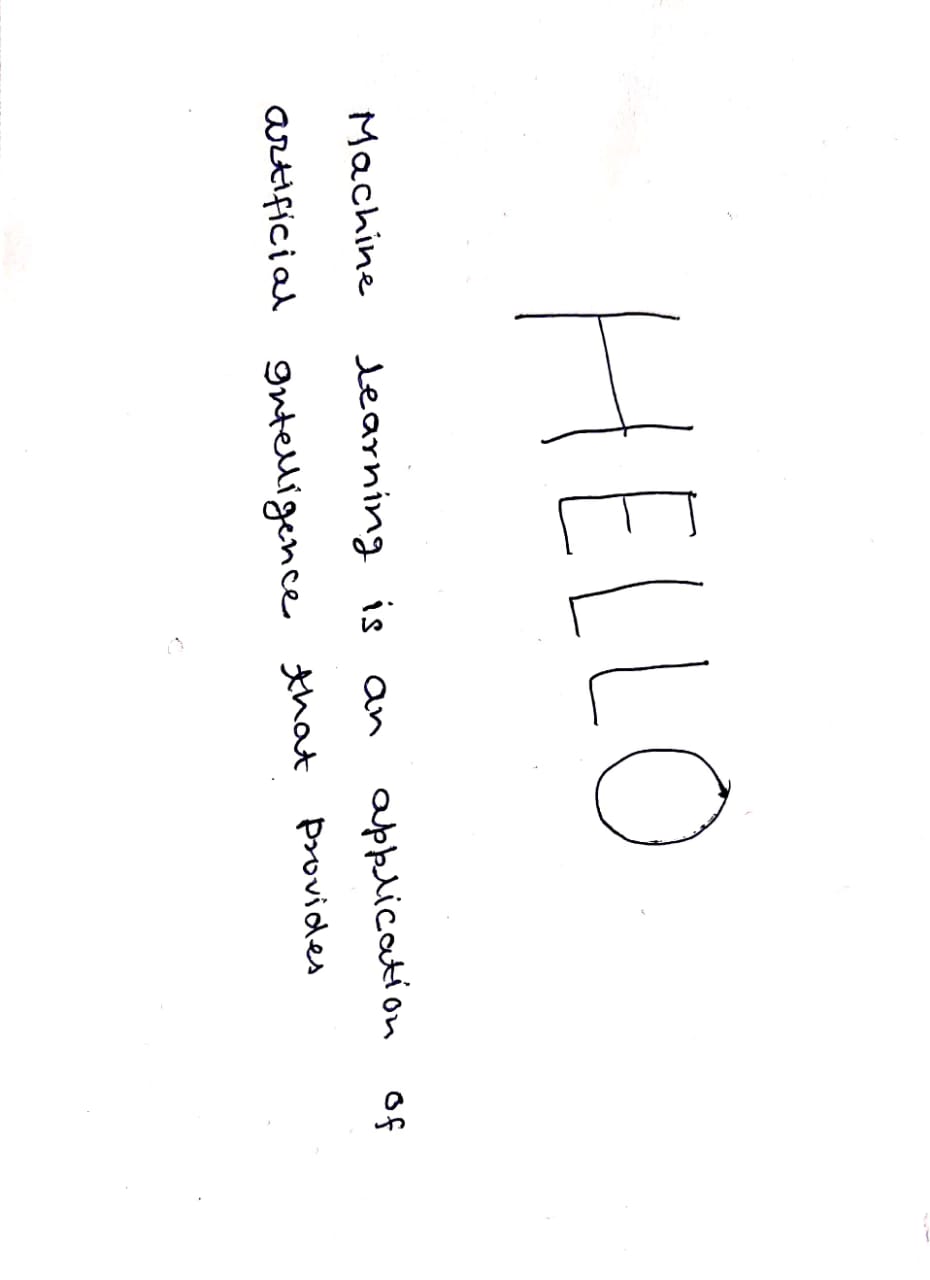 HELLO
Machine learning is an application of
artificial Intelligence that Provides